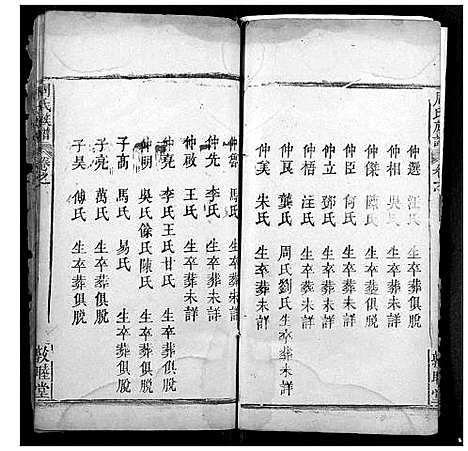 仲選 汪氏 生卒葬俱脫
仲相 吳氏 生卒葬未詳
仲傑 陳氏 生卒葬俱脫
仲臣 何氏 生卒葬未詳
仲立 鄧氏 生卒葬未詳
仲梧 汪氏 生卒葬未詳
仲良 龔氏 周氏劉氏生卒葬未詳
仲美 朱氏 生卒葬未詳
馬氏 生卒葬未詳
仲先 李氏 生卒葬未詳
仲啟 王氏 生卒葬未詳
仲堯 李氏王氏甘氏 生卒葬俱脫
仲明 吳氏餘氏陳氏 生卒葬俱脫
子高 馬氏 易氏 生卒葬俱脫
子亮 萬氏 生卒葬俱脫
子昊 傅氏 生卒葬俱脫
氏族譜 卷之 敦睦堂